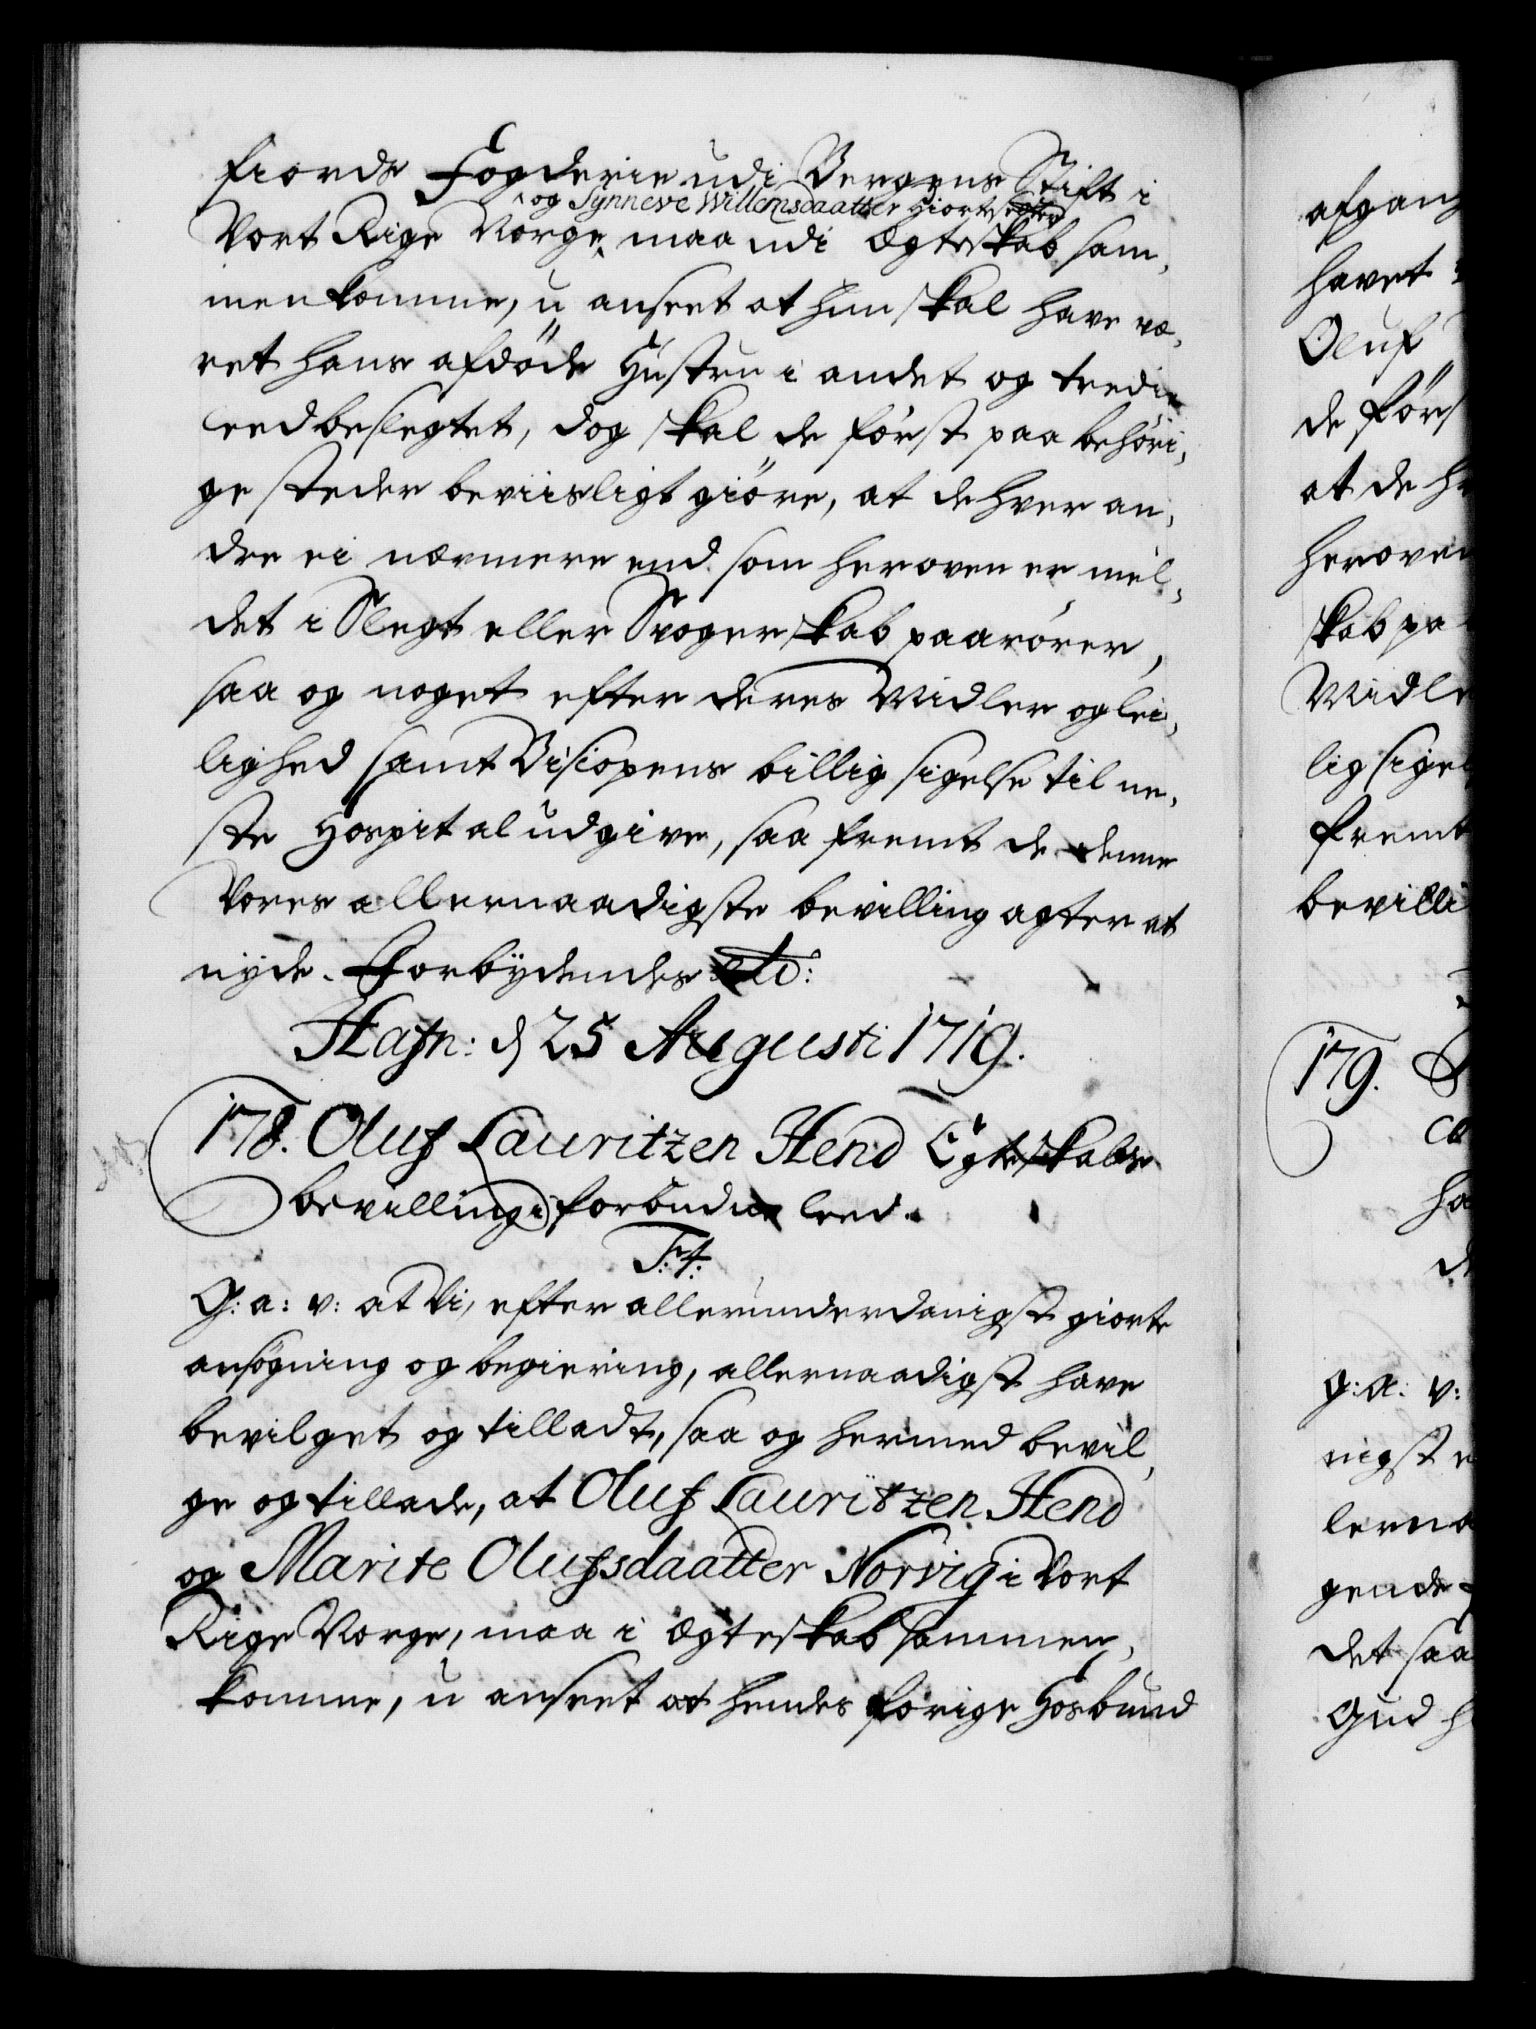 fiords Fogderie udi Bergens Stift i
^ og Synneve Willemsdaatter
Vort Rige Norge ^ maa udi Ægteskab sam,
menkomme, u anseet at hun skal have væ,
ret hans afdöde Hustru i andet og tredie
leed beslegtet, dog skal de först paa behöri,
ge steder beviisligt giöre, at de hver an,
dre ei nærmere end som heroven er mel,
det i Slegt eller Svogerskab paarörer,
saa og noget efter deres Midler og lei,
lighed samt Biscopens billig sigelse til ne,
ste Hospital udgive, saa fremt de denne
Vores allernaadigste bevilling agter at
nyde. Forbydendes etc:
Hafn: d 25 Augusti 1719.
178. Oluf Lauritzen Hend Egteskabs
bevilling i forbuden leed.
F: 4:
G: a: v: at Vi, efter allerunderdanigst giorte
ansögning og begiering, allernaadigst have
bevilget og tilladt, saa og hermed bevil,
ge og tillade, at Oluf Lauritzen Hend
og Marite Olufsdaatter Norvig i Vort
Rige Norge, maa i Ægteskab sammen,
komme, u anseet at hendes forige Hosbund
afgang
havet
Oluf
de förs
at de h
heroven
skab pa
Midle
lig sigel
fremt
bevilli
179.
ha
g: a: v:
nigst
lerna
gende
det saa
Gud h